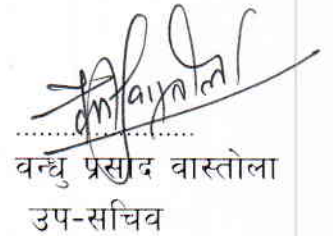 वन्धु प्रसाद वास्तोला
उप-सचिव